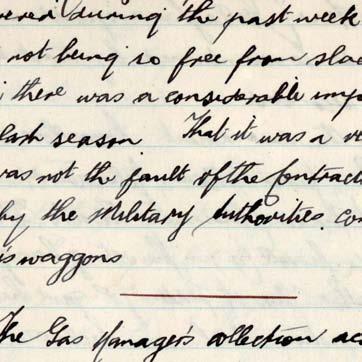 vered during the past week
not being so free from slac
there was a considerable imp
last season That it was a ve
was not the fault of the Contract
by the Military Authorities con
is waggons
The Gas Manager's collection ac